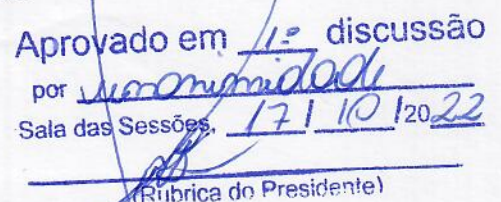 Aprovado em 1ª discussão
por unanimidade
Sala das Sessões, 17 / 10 /2022
(Rubrica do Presidente)